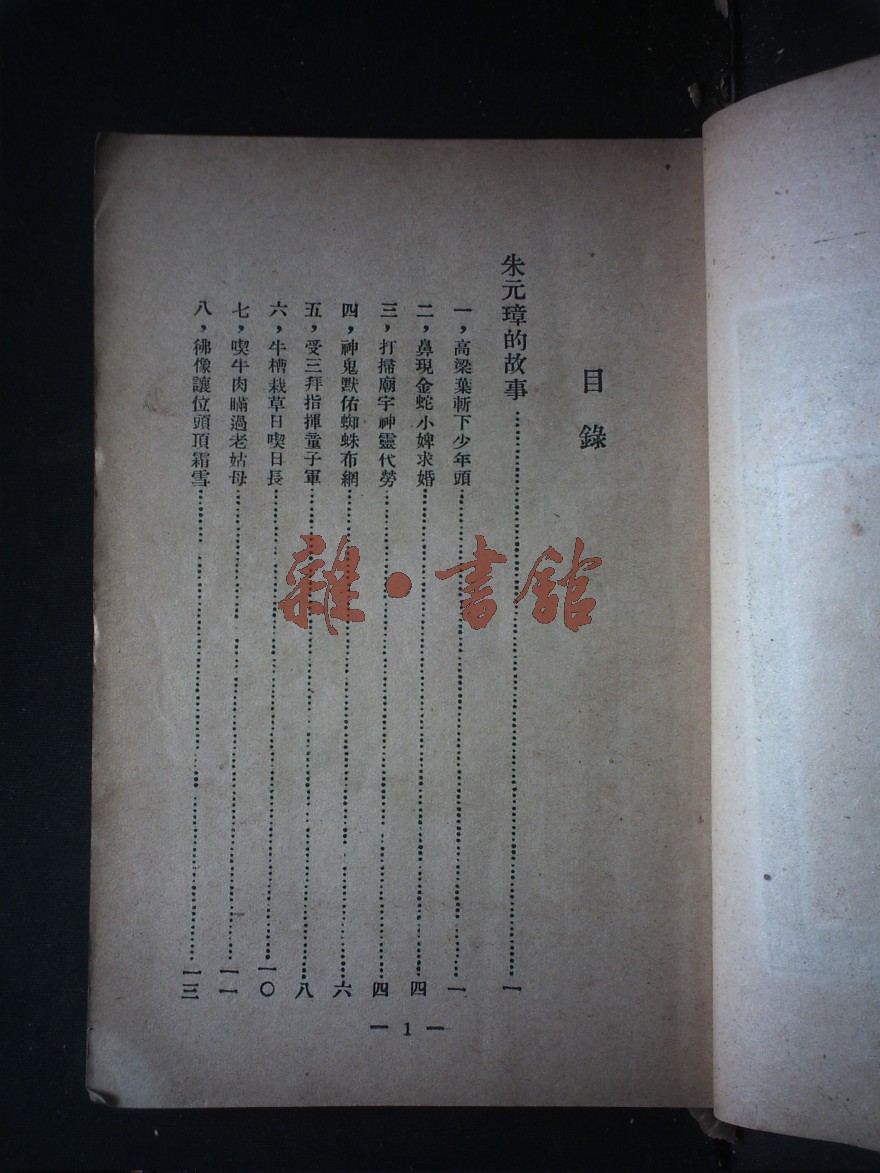 目錄
朱元璋的故事……一
一，高梁葉斬下少年頭……一
二，鼻現金蛇小婢求婚……四
三，打掃廟宇神靈代勞……四
四，神鬼默佑蜘蛛布網……六
五，受三拜指揮童子軍……八
六，牛槽栽草日喫日長……一〇
七，喫牛肉瞞過老姑母……一一
八，彿像讓位頭頂霜雪……一三
— 1 —
雜·書館